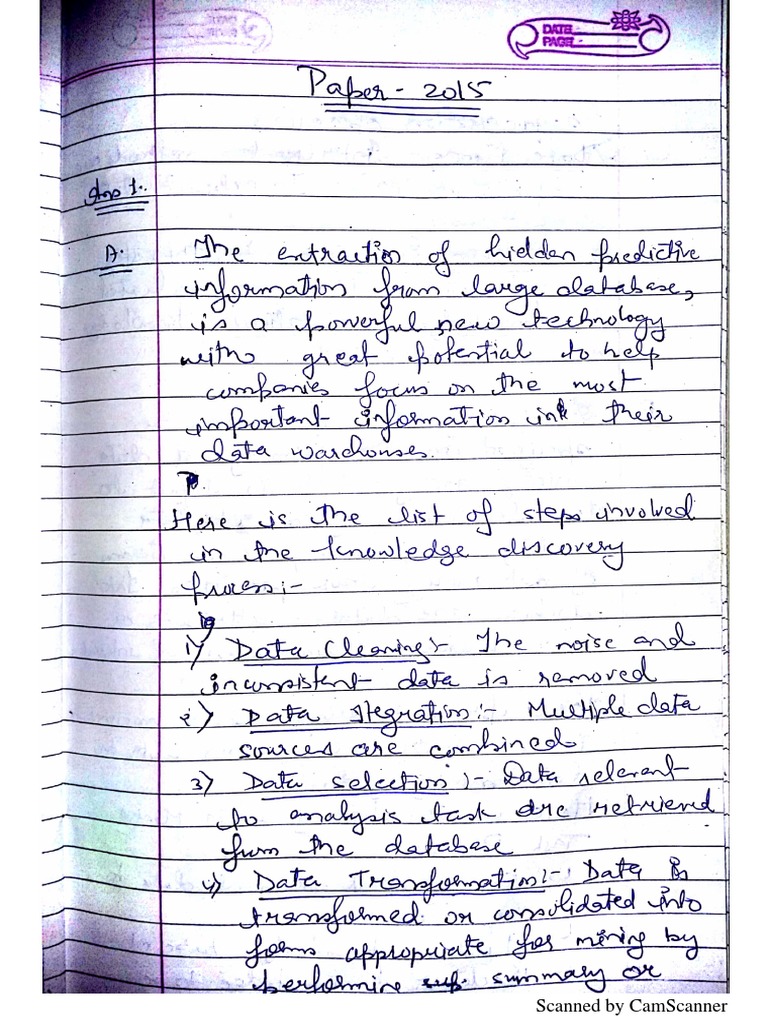 DATE
PAGE
Paper - 2015
Ans 1.
A. The extraction of hidden predictive
information from large database,
is a powerful new technology
with great potential to help
companies focus on the most
important information in their
data warehouses.
Here is the list of steps involved
in the knowledge discovery
process:-
1) Data Cleaning:- The noise and
inconsistent data is removed
2) Data Itegration:- Multiple data
sources are combined
3) Data selection:- Data relevant
to analysis task are retrieved
from the database
4) Data Transformation:- Data is
transformed or consolidated into
forms appropriate for mining by
performing summary or
Scanned by CamScanner